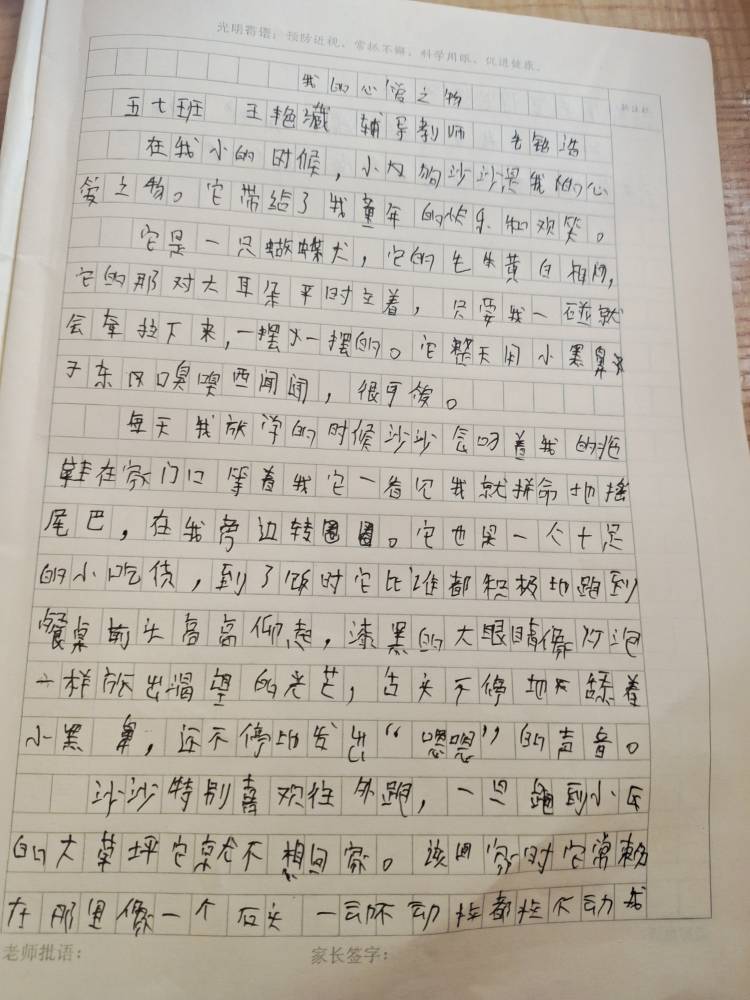 光明寄语：预防近视，常抓不懈，科学用眼，促进健康。
我的心爱之物
五七班 王艳 辅导教师
在我小的时候，小狗沙沙是我的心
爱之物。它带给了我童年的快乐和欢笑。
它是一只蝴蝶犬，它的毛发黄白相间，
它的那对大耳朵平时立着，只要我一碰就
会牵拉下来，一摆一摆的。它整天用小黑鼻
子东风口嗅嗅西闻闻，很可爱。
每天我放学的时候沙沙会叼着我的拖
鞋在家门口等着我它一看见我就拼命地摇
尾巴，在我旁边转圈圈。它也是一个十足
的小吃货，到了饭时它比谁都积极地跑到
餐桌前头高高仰起，漆黑的大眼睛像灯泡
一样放出渴望的光芒，舌头不停地舔着
小黑鼻，还不停地发出“嗯嗯”的声音。
沙沙特别喜欢往外跑，一旦跑到小区
的大草坪它就不想回家。该回家时它常赖
在那里像一个石头一动不动拉都拉不动我
老师批语： 家长签字：